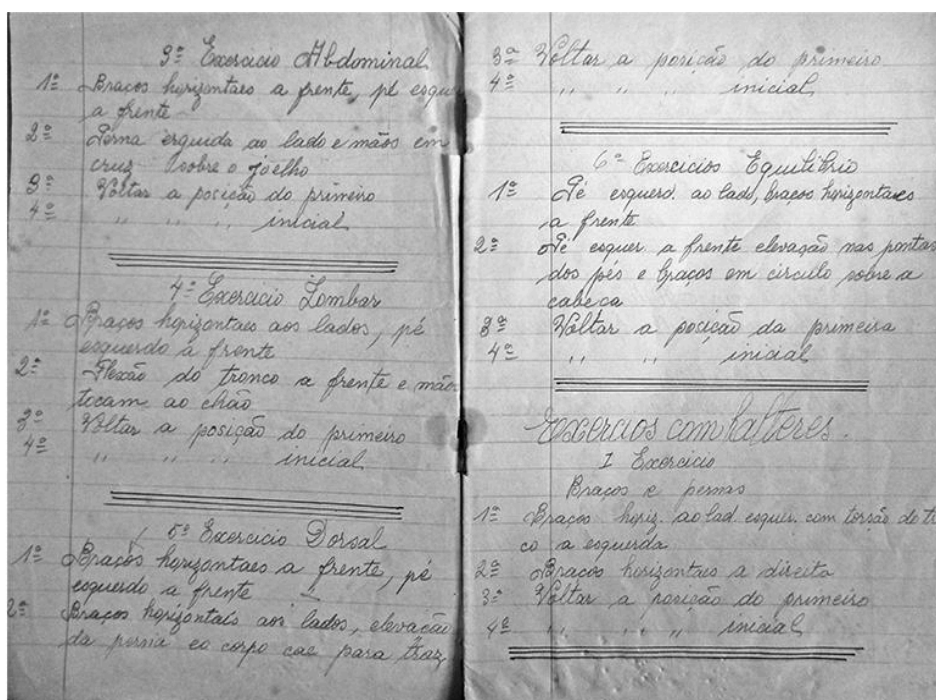 3º Exercicio Abdominal
1º Braços horizontaes a frente, pé esqu
a frente
2º Perna erguida ao lado e mãos em
cruz sobre o joelho
3º Voltar a posição do primeiro
4º ,, ,, ,, inicial
4º Exercicio Lombar
1º Braços horizontaes aos lados, pé
esquerdo a frente
2º Flexão do tronco a frente e mãos
tocam ao chão
3º Voltar a posição do primeiro
4º ,, ,, ,, inicial
5º Exercicio Dorsal
1º Braços horizontaes a frente, pé
esquerdo a frente
2º Braços horizontais aos lados, elevação
da perna eo corpo cae para traz
3ª Voltar a posição do primeiro
4º ,, ,, ,, inicial
6º Exercicios Equilibrio
1º Pé esquerd. ao lado, braços horizontaes
a frente
2º Pé esquer. a frente elevação nas pontas
dos pés e braços em circulo sobre a
cabeça
3ª Voltar a posição da primeira
4º ,, ,, inicial
Exercios com halteres.
I Exercicio
Braços e pernas
1º Braços horiz. ao lad. esquer. com torsão do tr
co a esquerda
2º Braços horizontaes a direita
3º Voltar a posição do primeiro
4º ,, ,, ,, inicial